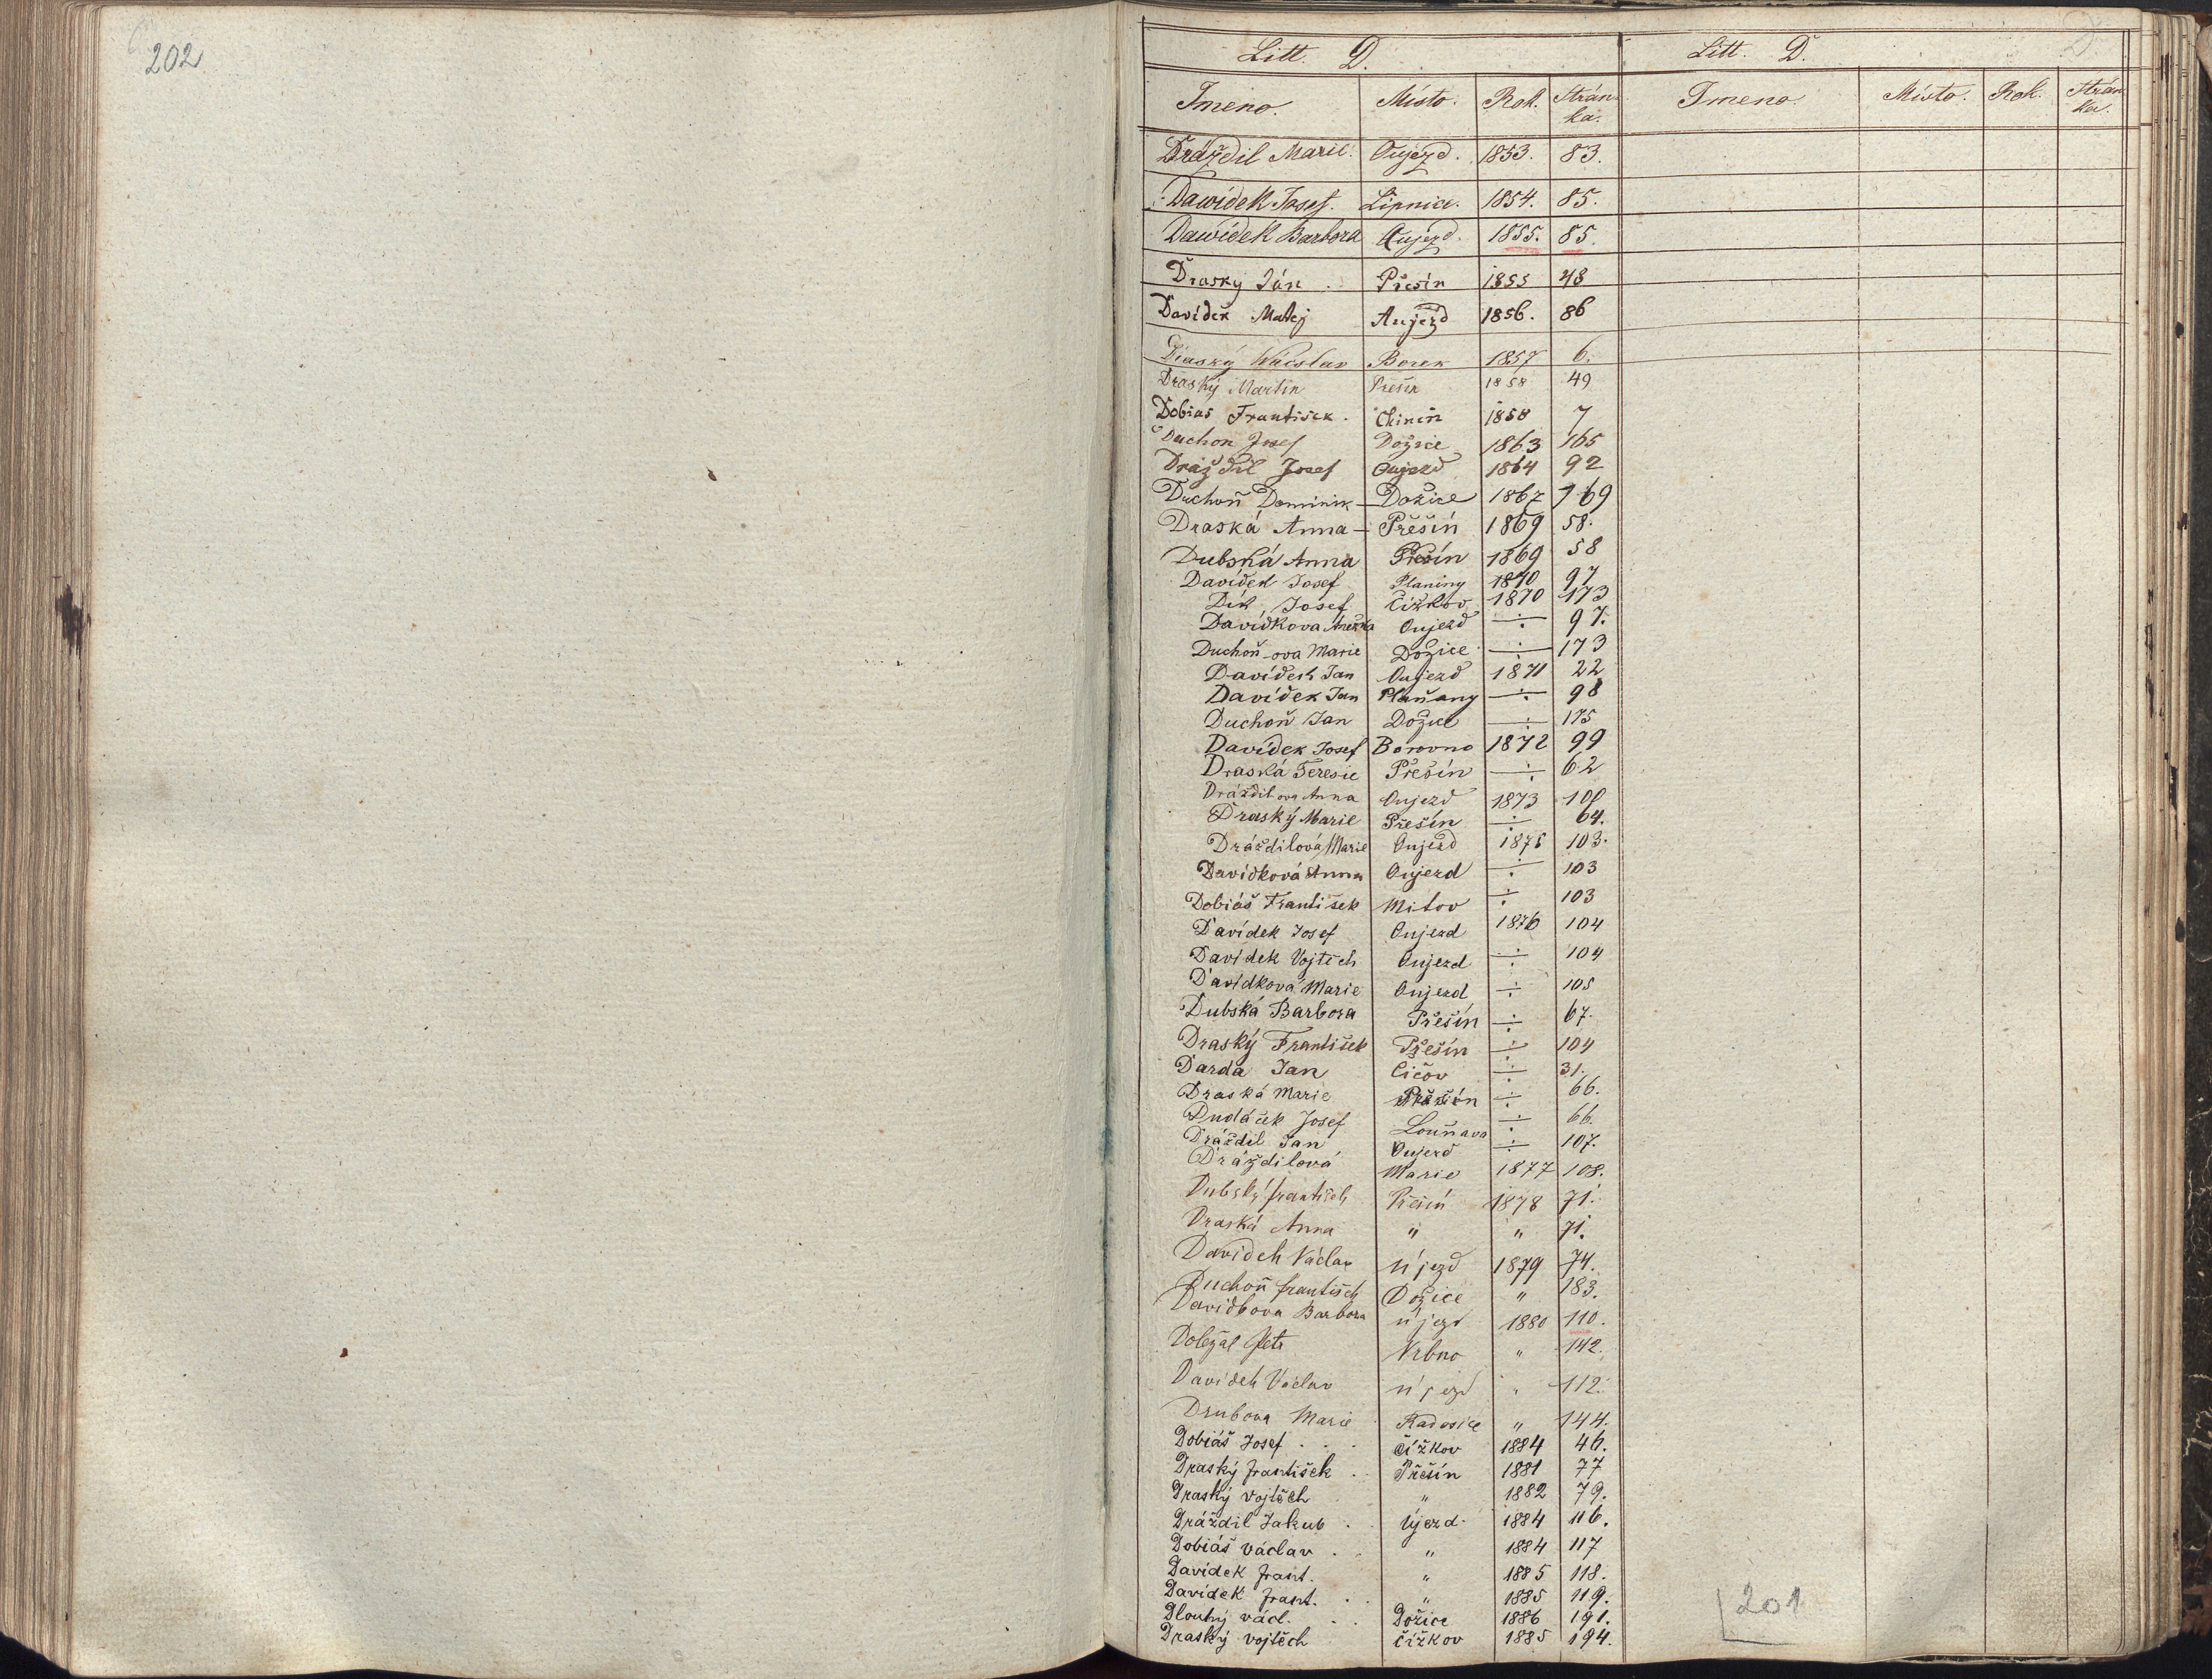 202
Litt. D. Litt. D.
Jmeno. Místo. Rok. Strán-ka. Jmeno. Místo. Rok. Strán-ka.
Dráždil Marie. Oujezd. 1853. 83.
Dawídek Josef. Lipnice. 1854. 85.
Dawídek Barbora Aujezd. 1855. 85.
Drasky Ján. Přesín 1855 48
Davídek Matej Aujezd 1856. 86
Draský Wácslav Borek 1857 6.
Draský Martin Prešín 1858 49
Dobias František. Chinin 1858 7
Duchon Josef Dožice 1863 165
Dráždil Josef Oujezd 1864 92
Duchoň Dominik Dožice 1867 169
Draská Anna Přešín 1869 58.
Dubská Anna Přesín 1869 58
Davídek Josef Planiny 1870 97
Dik Josef Čižkov 1870 173
Davídkova Anežka Oujezd ÷ 97.
Duchoň-ova Marie Dožice ÷ 173
Davídek Jan Oujezd 1871 22
Davídek Jan Plaňany ÷ 98
Duchoň Jan Dožice ÷ 175
Davídek Josef Borovno 1872 99
Draská Teresie Přešín ÷ 62
Dráždilova Anna Oujezd 1873
Draský Marie Přešín ÷ 64.
Dráždilová Marie Oujezd 1875 103.
Davídková Anna Oujezd ÷ 103
Dobiáš František Mitov ÷ 103
Davídek Josef Oujezd 1876 104
Davídek Vojtěch Oujezd ÷ 104
Davídková Marie Oujezd ÷ 105
Dubská Barbora Přešín ÷ 67.
Draský František Přešín ÷ 104
Darda Jan Čičov ÷ 31.
Draská Marie Přešín ÷ 66.
Dudáček Josef Louňava ÷ 66.
Dráždil Jan Oujezd ÷ 107.
Dráždilová Marie 1877 108.
Dubský František Přešín 1878 71.
Draská Anna " " 71.
Davídek Václav Újezd 1879 74.
Duchoň František Dožice " 183.
Davídkova Barbora újezd 1880 110.
Doležal Petr Vrbno " 142.
Davídek Václav újezd " 112.
Drubova Marie Radosice " 144.
Dobiáš Josef... Čížkov 1884 46.
Draský František.. Přešín 1881 77
Draský Vojtěch " 1882 79.
Dráždil Jakub. Újezd. 1884 116.
Dobiáš Václav.. " 1884 117
Davídek Frant. " 1885 118.
Davídek Frant.. " 1885 119.
Dlouhý Václ... Dožice 1886 191.
Draský Vojtěch Čížkov 1885 194.
201